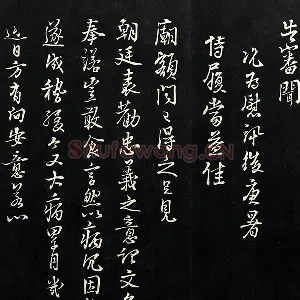 審聞
況為慰訊後庚暑
侍履當益佳
廟額聞已得之足見
朝廷表勸忠義之意記文
奉諾豈敢食言然以病冗因
遂成稽緩今又大病累月幾
近日方有向安意若心
Shufawang.cn